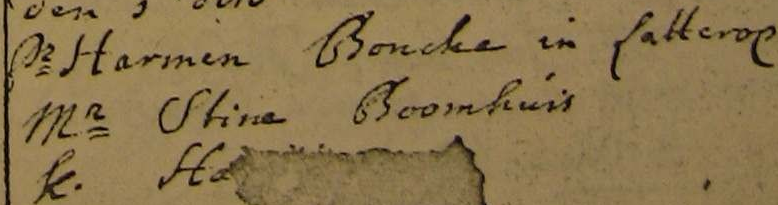 den 3 dito
Vr Harmen Boncke in Latterop
Mr Stine Boomhuis
k. Ha